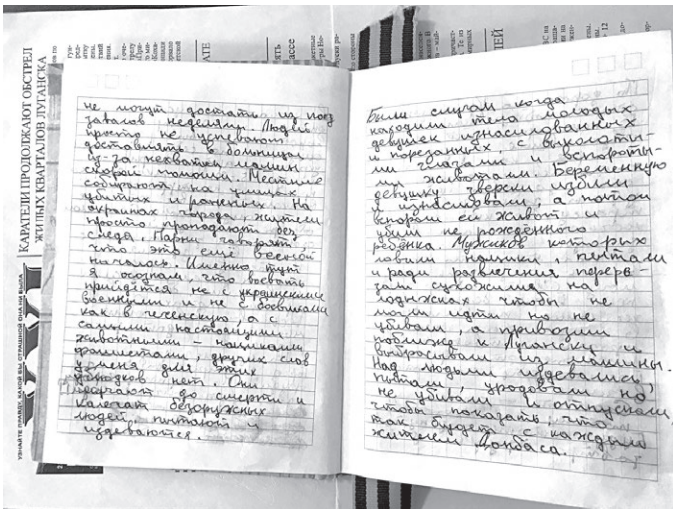 КАРАТЕЛИ ПРОДОЛЖАЮТ ОБСТРЕЛ
ЖИЛЫХ КВАРТАЛОВ ЛУГАНСКА
УЗНАЙТЕ ПРАВДУ, КАКОЙ БЫ СТРАШНОЙ ОНА НИ БЫЛА
не могут достать из под
завалов неделями. Людей
просто не успевают
доставлять в больницы
из-за нехватки машин
скорой помощи. Местные
собирают на улицах
убитых и раненых. На
окраинах города, жители
просто пропадают без
следа. Парни говорят
что это ещё весной
началось. Именно тут
я осознал, что воевать
прийдется не с украинскими
военными и не с боевиками
как в чеченскую, а с
самыми настоящими
животными - нациками
фашистами, других слов
у меня для этих
ублюдков нет. Они
до смерти и
калечат безоружных
людей, пытают и
издеваются.
Были случаи когда
находили тела молодых
девушек изнасилованных
и порезанных, с выколоты-
ми глазами и вспороты-
ми животами. Беременную
девушку зверски избили
и изнасиловали, а потом
вспороли ей живот и
убили не рождённого
ребёнка. Мужиков которых
ловили нацики, пытали
и ради развлечения перере-
зали сухожилия на
лодыжках чтобы не
могли идти но не
убивали, а привозили
поближе к Луганску и
выбрасывали из машины.
Над людьми издевались,
пытали, уродовали но
не убивали и отпускали
чтобы показать, что
так будет с каждым
жителем Донбаса.